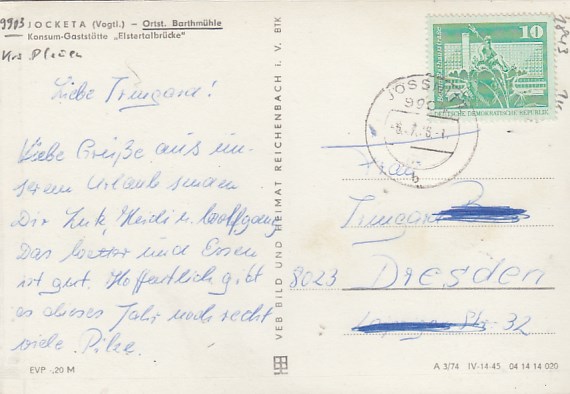 9903 JOCKETA (Vogtl.) – Ortst. Barthmühle
Konsum-Gaststätte „Elstertalbrücke"
Krs Plauen
Liebe Irmgard!
Liebe Grüße aus un-
serem Urlaub senden
Dir Lutz, Heidi u. Wolfgang.
Das Wetter und Essen
ist gut. Hoffentlich gibt
es dieses Jahr noch recht
viele Pilze.
EVP -,20 M
VEB BILD UND HEIMAT REICHENBACH i. V. BTK
10
DEUTSCHE DEMOKRATISCHE REPUBLIK
990
Frau
Irmgard
8023 Dresden
Str. 32
A 3/74 IV-14-45 04 14 14 020